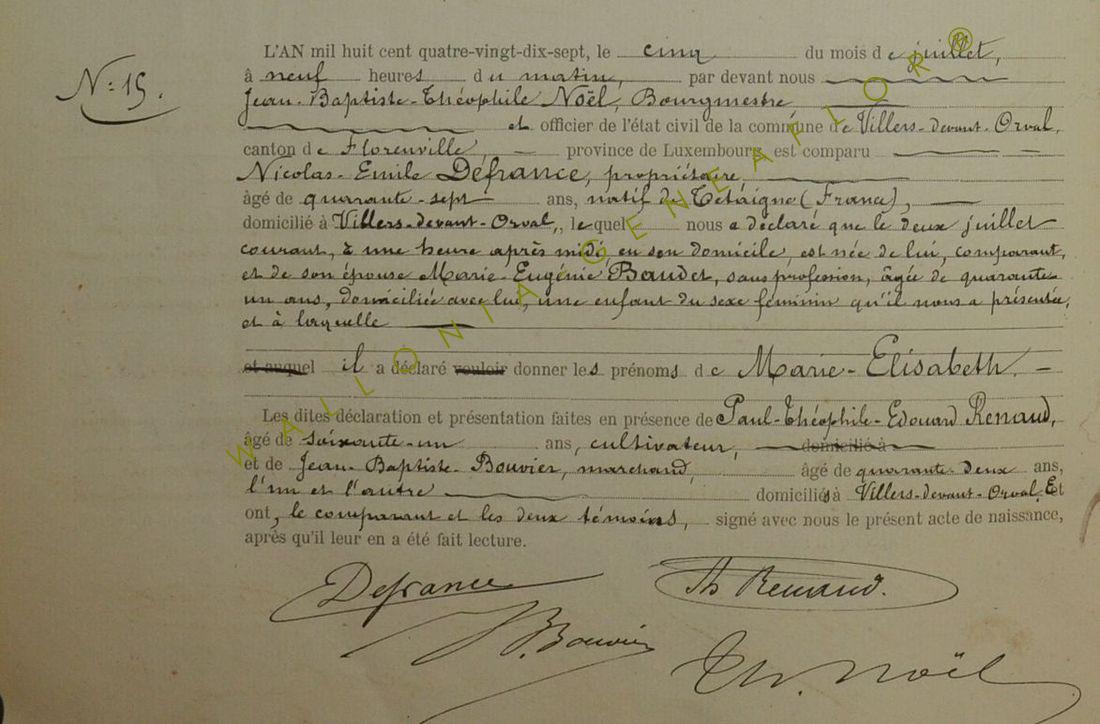 N: 15.
L'AN mil huit cent quatre-vingt-dix-sept, le cinq du mois de juillet,
à neuf heures du matin, par devant nous
Jean-Baptiste-Théophile Noël, Bourgmestre
et officier de l'état civil de la commune de Villers-devant-Orval,
canton de Florenville, province de Luxembourg, est comparu
Nicolas-Emile Defrance, propriétaire,
âgé de quarante-sept ans, natif de Tetaigne (France),
domicilié à Villers-devant-Orval, lequel nous a déclaré que le deux juillet
courant, à une heure après midi, en son domicile, est née de lui, comparant,
et de son épouse Marie-Eugénie Baudet, sans profession, âgée de quarante
un ans, domiciliée avec lui, une enfant du sexe féminin qu'il nous a présentée,
et à laquelle
et auquel il a déclaré vouloir donner les prénoms de Marie-Elisabeth.
Les dites déclaration et présentation faites en présence de Paul-Théophile-Edouard Renaud,
âgé de soixante-un ans, cultivateur, domicilié à
et de Jean-Baptiste-Bouvier, marchand, âgé de quarante-deux ans,
l'un et l'autre domiciliés à Villers-devant-Orval. Et
ont, le comparant et les deux témoins, signé avec nous le présent acte de naissance,
après qu'il leur en a été fait lecture.
Defrance Th Renaud.
B. Bouvier
Th. Noël
WALLONIA GENEAPIOR®